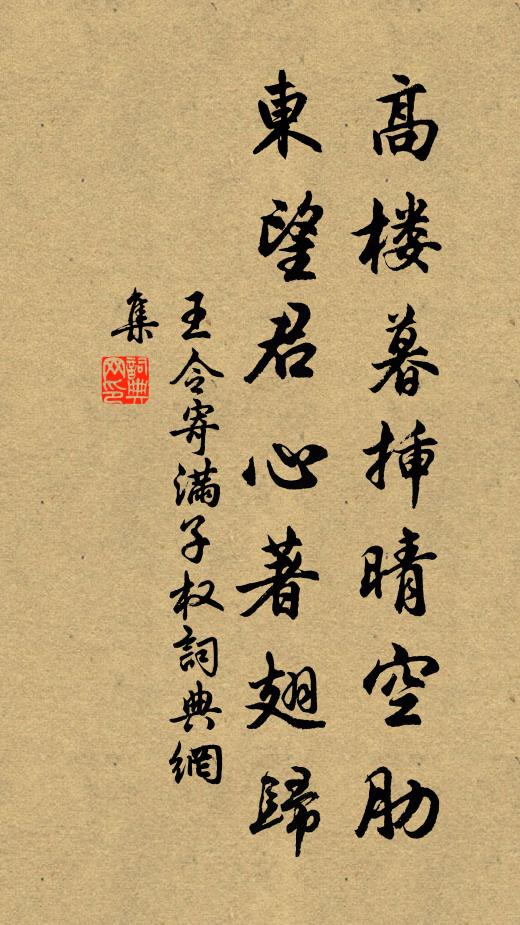 高楼暮挿晴空肋
東望君心著翅歸
王令寄满子权詞典網
集
詞典网印